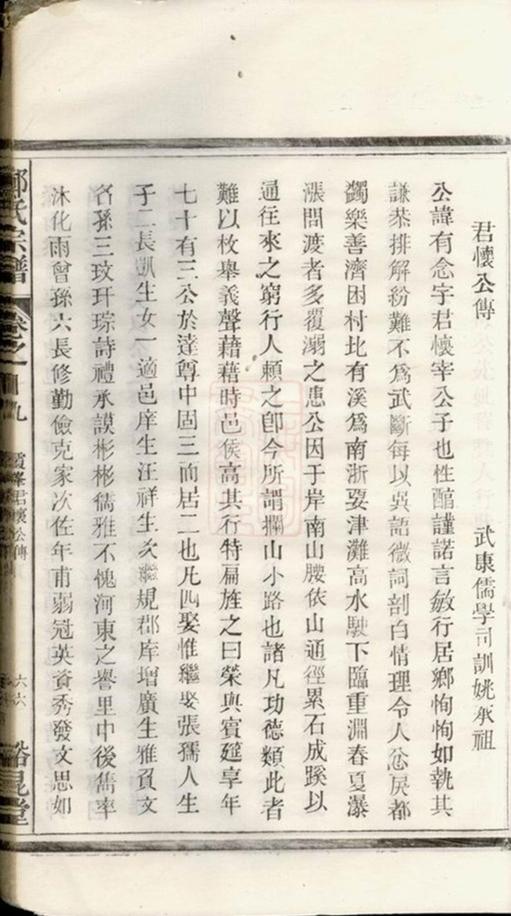 君懷公傳
武康儒學司訓姚承祖
公諱有念字君懷宰公子也性醇謹諾言敏行居鄉恂恂如執其
謙恭排解紛難不爲武斷每以吳語微詞剖白情理令人忿戾都
蠲樂善濟困村比有溪爲南浙要津灘高水駛下臨重淵春夏瀑
漲問渡者多覆溺之患公因于岸南山腰依山通徑累石成蹊以
通往來之窮行人賴之卽今所謂攔山小路也諸凡功德類此者
難以枚舉義聲藉藉時邑侯高其行特扁旌之曰榮與賓筵享年
七十有三公於達尊中固三而居二也凡四娶惟繼娶張孺人生
子二長凱生女一適邑庠生汪祥生次繼規郡庠增廣生雅負文
名孫三玟玕琮詩禮承謨彬彬儒雅不愧河東之譽里中後雋率
沐化雨曾孫六長修勤儉克家次佐年甫弱冠英資秀發文思如
氏宗譜
卷之
君懷公傳
六六